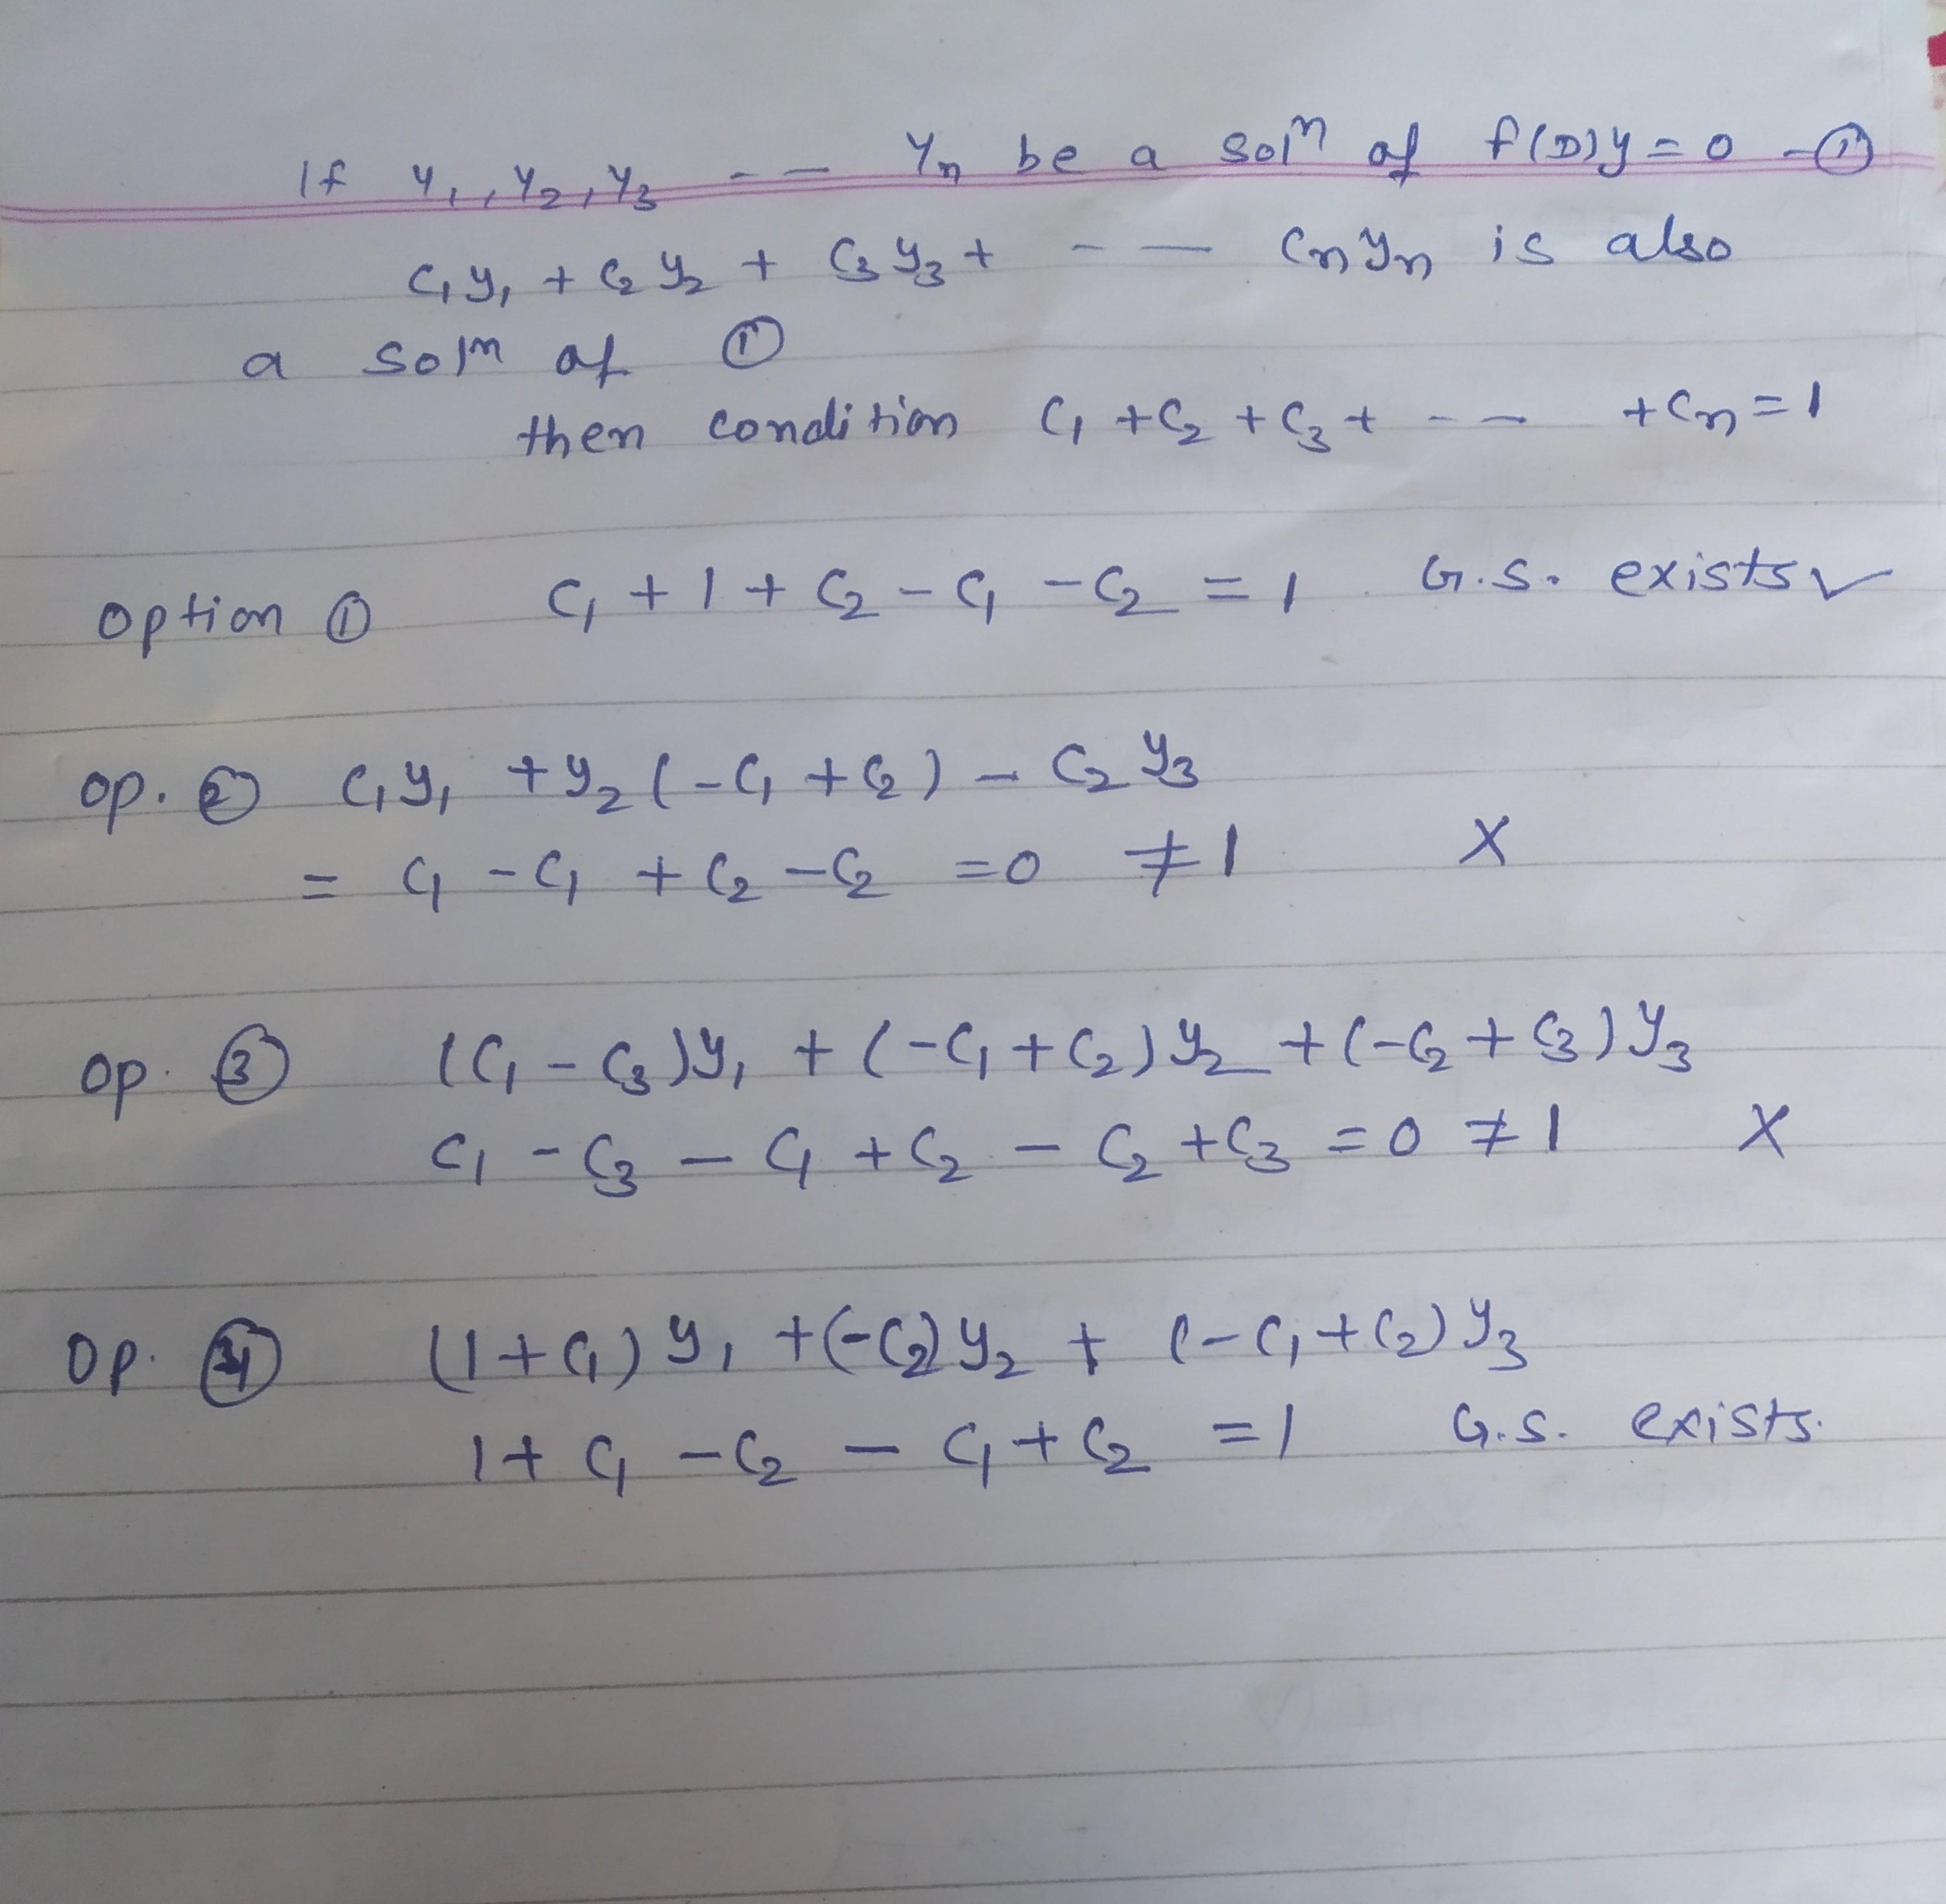 If y₁, y₂, y₃ -- yₙ be a solⁿ of f(D)y=0 -①
c₁y₁ + c₂y₂ + c₃y₃ + -- cₙyₙ is also
a solⁿ of ①
then condition c₁ + c₂ + c₃ + -- + cₙ = 1
option ① c₁ + 1 + c₂ - c₁ - c₂ = 1 G.S. exists ✓
op. ② c₁y₁ + y₂(-c₁ + c₂) - c₂y₃
= c₁ - c₁ + c₂ - c₂ = 0 ≠ 1 X
op. ③ (c₁ - c₃)y₁ + (-c₁ + c₂)y₂ + (-c₂ + c₃)y₃
c₁ - c₃ - c₁ + c₂ - c₂ + c₃ = 0 ≠ 1 X
op. ④ (1 + c₁)y₁ + (-c₂)y₂ + (-c₁ + c₂)y₃
1 + c₁ - c₂ - c₁ + c₂ = 1 G.S. exists.